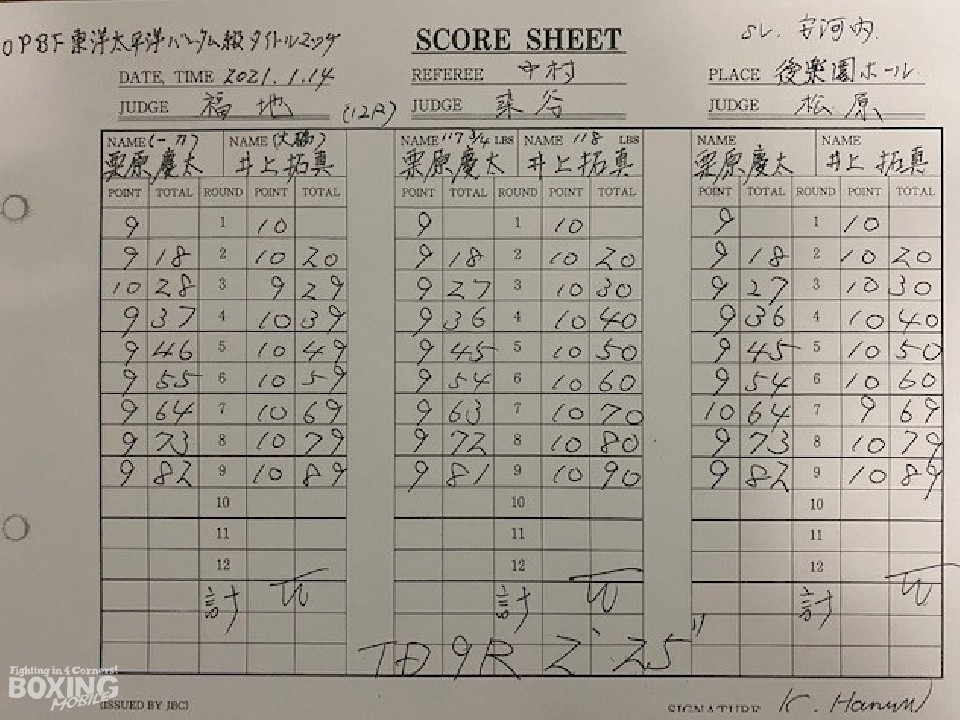 OPBF東洋太平洋バンタム級タイトルマッチ SCORE SHEET SV. 安河内
DATE, TIME 2021.1.14 REFEREE 中村 PLACE 後楽園ホール
JUDGE 福地 (12R) JUDGE 染谷 JUDGE 松原
NAME NAME (大橋) NAME 117 3/4 LBS NAME 118 LBS NAME NAME
栗原慶太 井上拓真 栗原慶太 井上拓真 栗原慶太 井上拓真
POINT TOTAL ROUND POINT TOTAL POINT TOTAL ROUND POINT TOTAL POINT TOTAL ROUND POINT TOTAL
9 1 10 9 1 10 9 1 10
9 18 2 10 20 9 18 2 10 20 9 18 2 10 20
10 28 3 9 29 9 27 3 10 30 9 27 3 10 30
9 37 4 10 39 9 36 4 10 40 9 36 4 10 40
9 46 5 10 49 9 45 5 10 50 9 45 5 10 50
9 55 6 10 59 9 54 6 10 60 9 54 6 10 60
9 64 7 10 69 9 63 7 10 70 10 64 7 9 69
9 73 8 10 79 9 72 8 10 80 9 73 8 10 79
9 82 9 10 89 9 81 9 10 90 9 82 9 10 89
10 10 10
11 11 11
12 12 12
計 W 計 W 計 W
TD 9R 2'25"
Fighting in 4 Corners!
BOXING
MOBILE
(ISSUED BY JBC) SIGNATURE